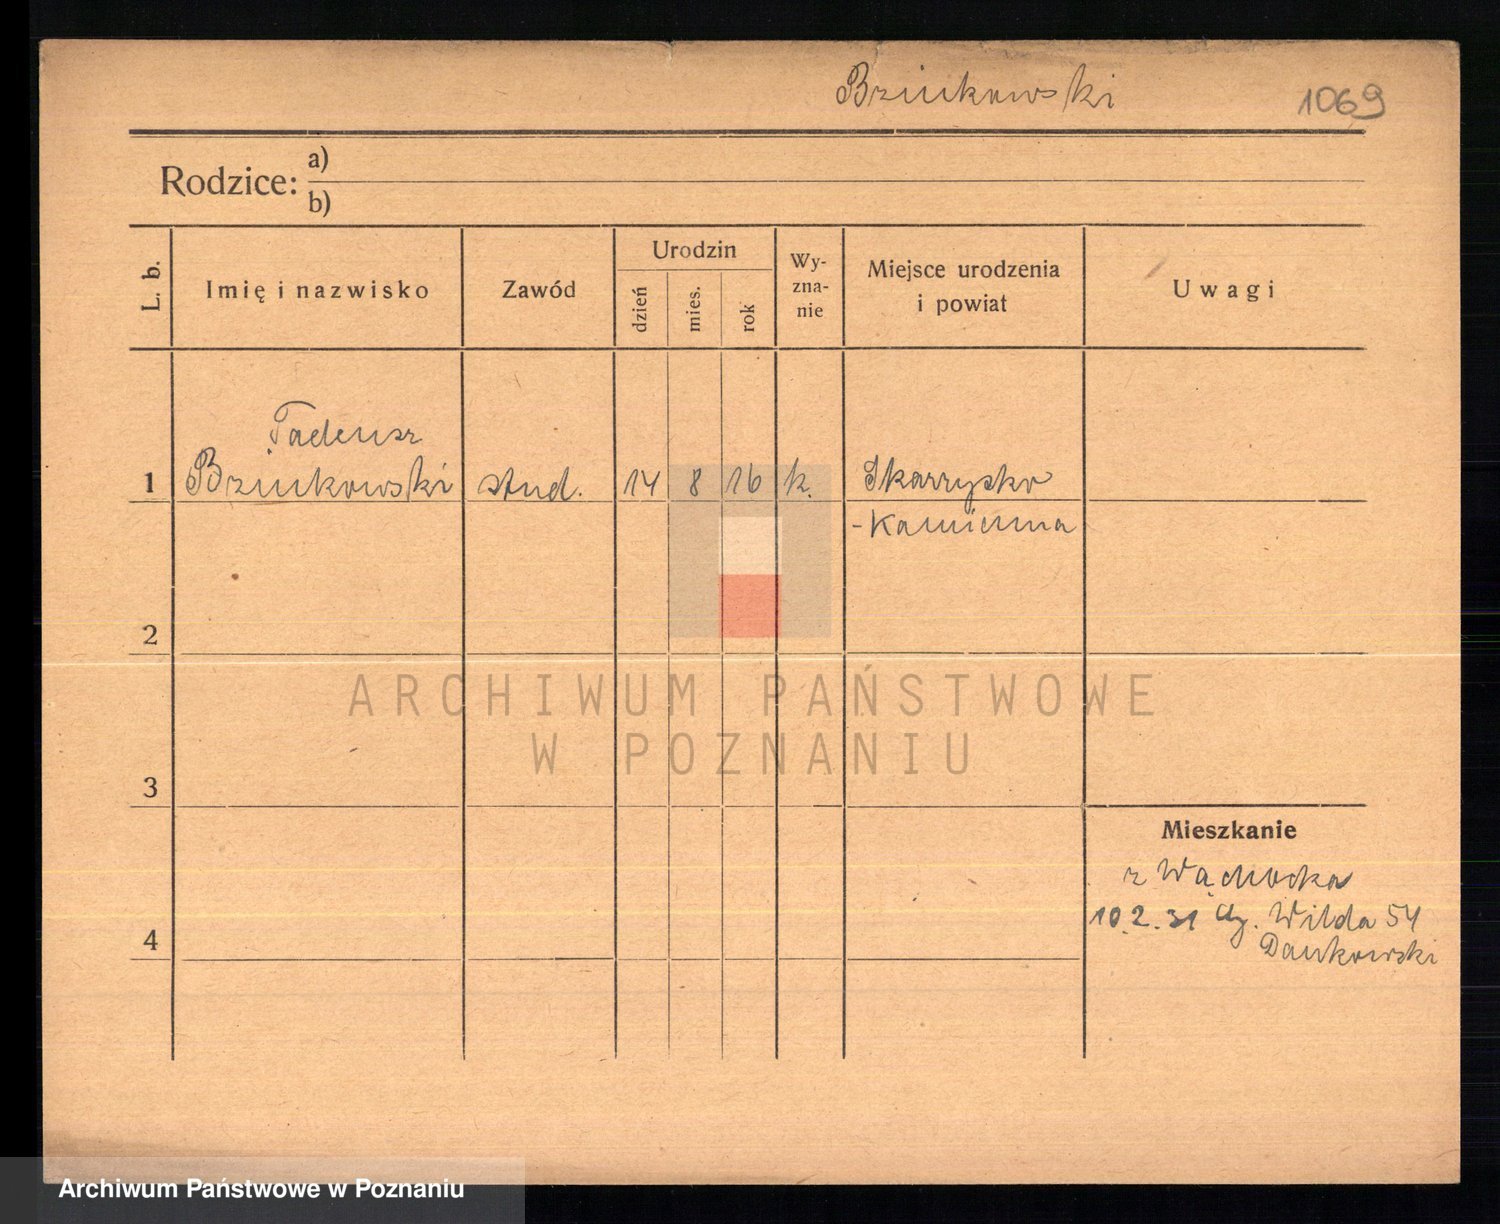 Brzinkowski 1069
Rodzice: a)
b)
L. b.
Imię i nazwisko
Zawód
Urodzin
dzień
mies.
rok
Wy-
zna-
nie
Miejsce urodzenia
i powiat
Uwagi
Tadeusz
1 Brzinkowski stud. 14 8 16 k. Skarżysko
-Kamienna
2
3
4
Mieszkanie
z Wąchocka
10.2.31 Wilda 54
Dankowski
ARCHIWUM PAŃSTWOWE
W POZNANIU
Archiwum Państwowe w Poznaniu